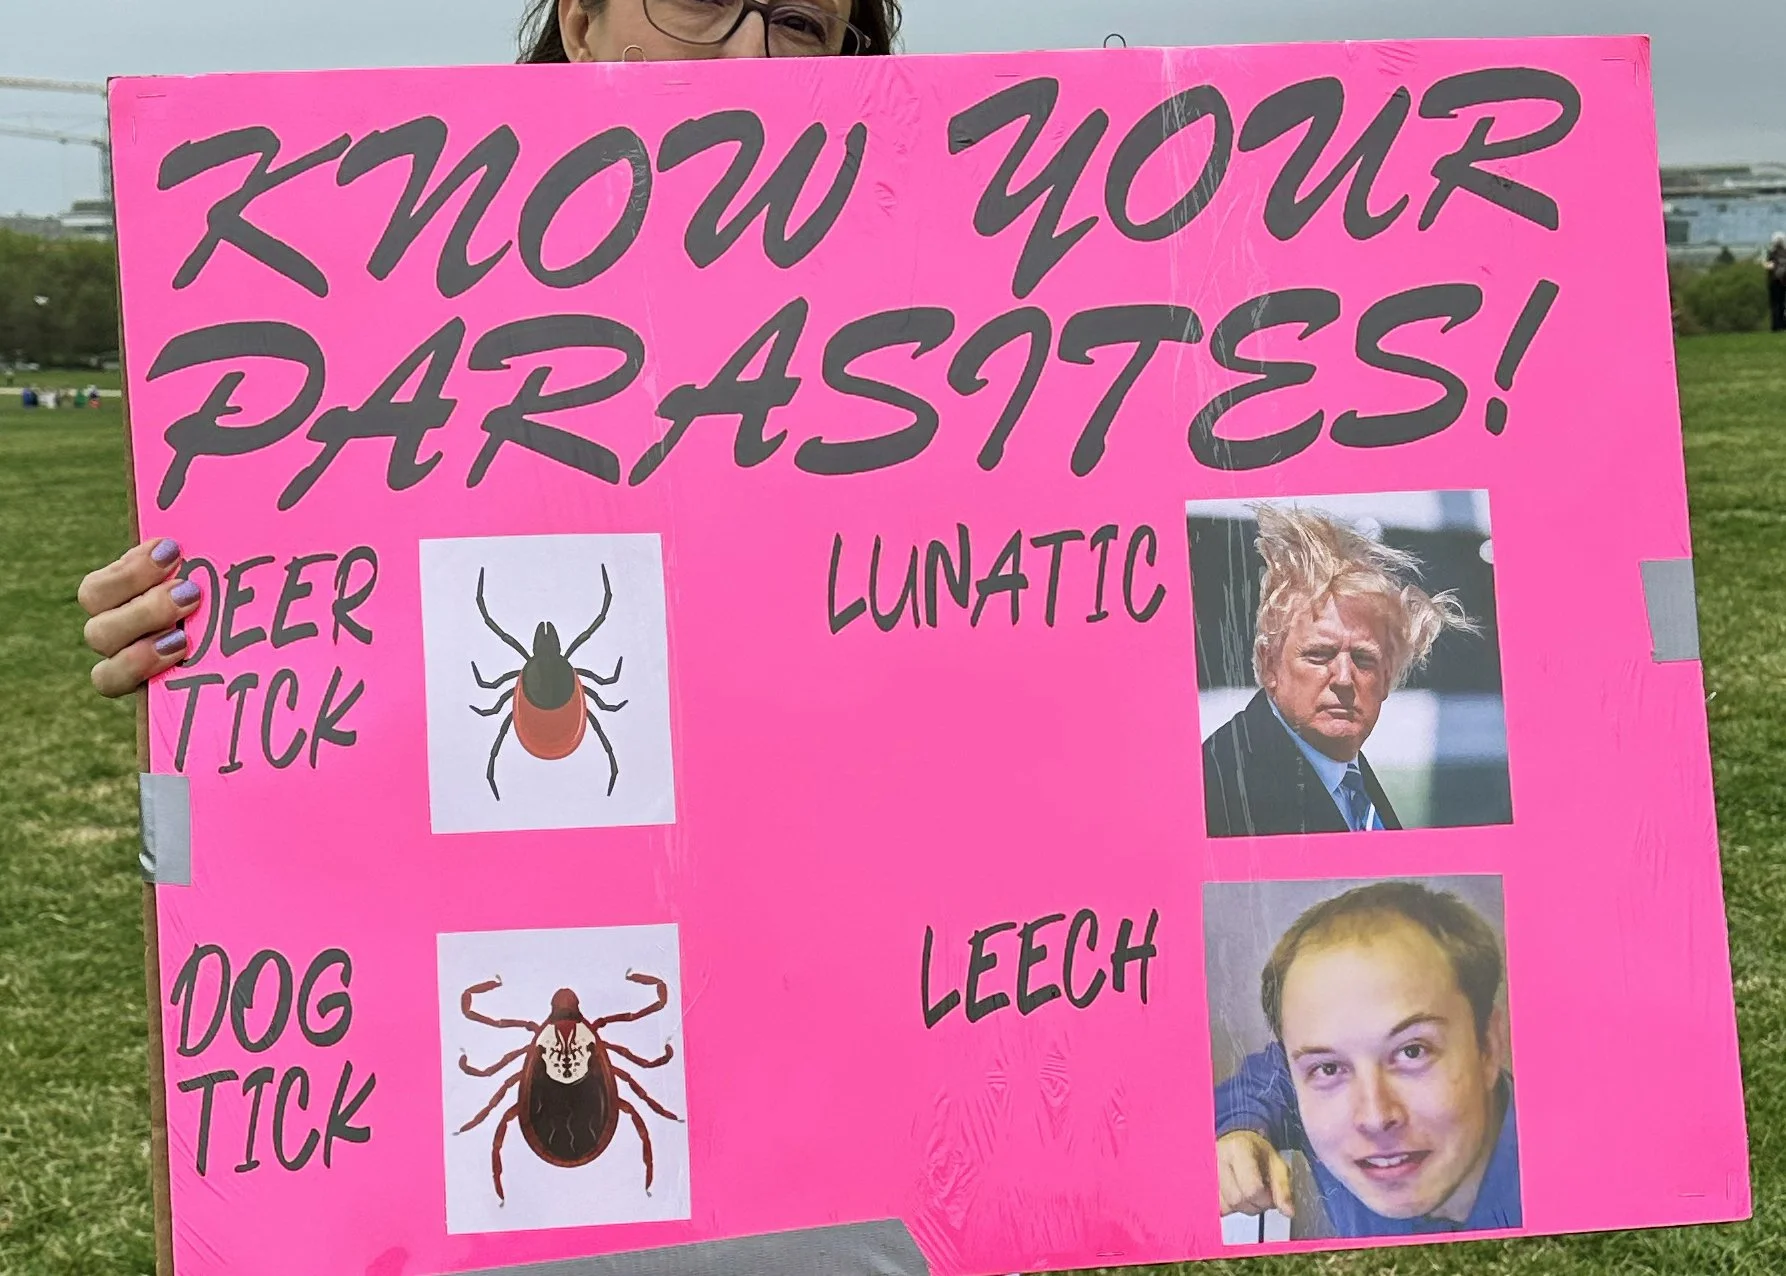 KNOW YOUR
PARASITES!
DEER
TICK
LUNATIC
DOG
TICK
LEECH